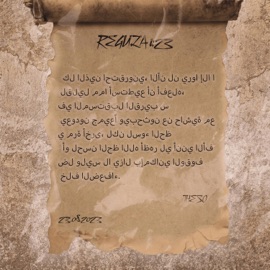 كل الذين احتقروني، الآن لن يروا إلا ا
لقليل مما أستطيع أن أفعله،
في المستقبل القريب س
يعودون جميعاً ويبحثون عن حاشية مع
ي مرة أخرى، لكن لسوء الحظ
أو لحسن الحظ الله أظهر لي أنني ألف
ضل وليس لا يزال بإمكاني الوقوف
خلف الضعفاء.